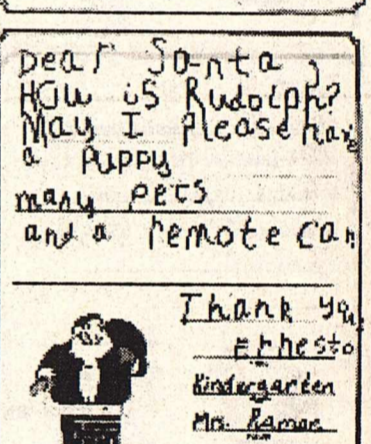 Dear Santa,
How is Rudolph?
May I Please have
a Puppy
many pets
and a remote car
Thank you,
Ernesto
Kindergarten
Mrs. Ramon